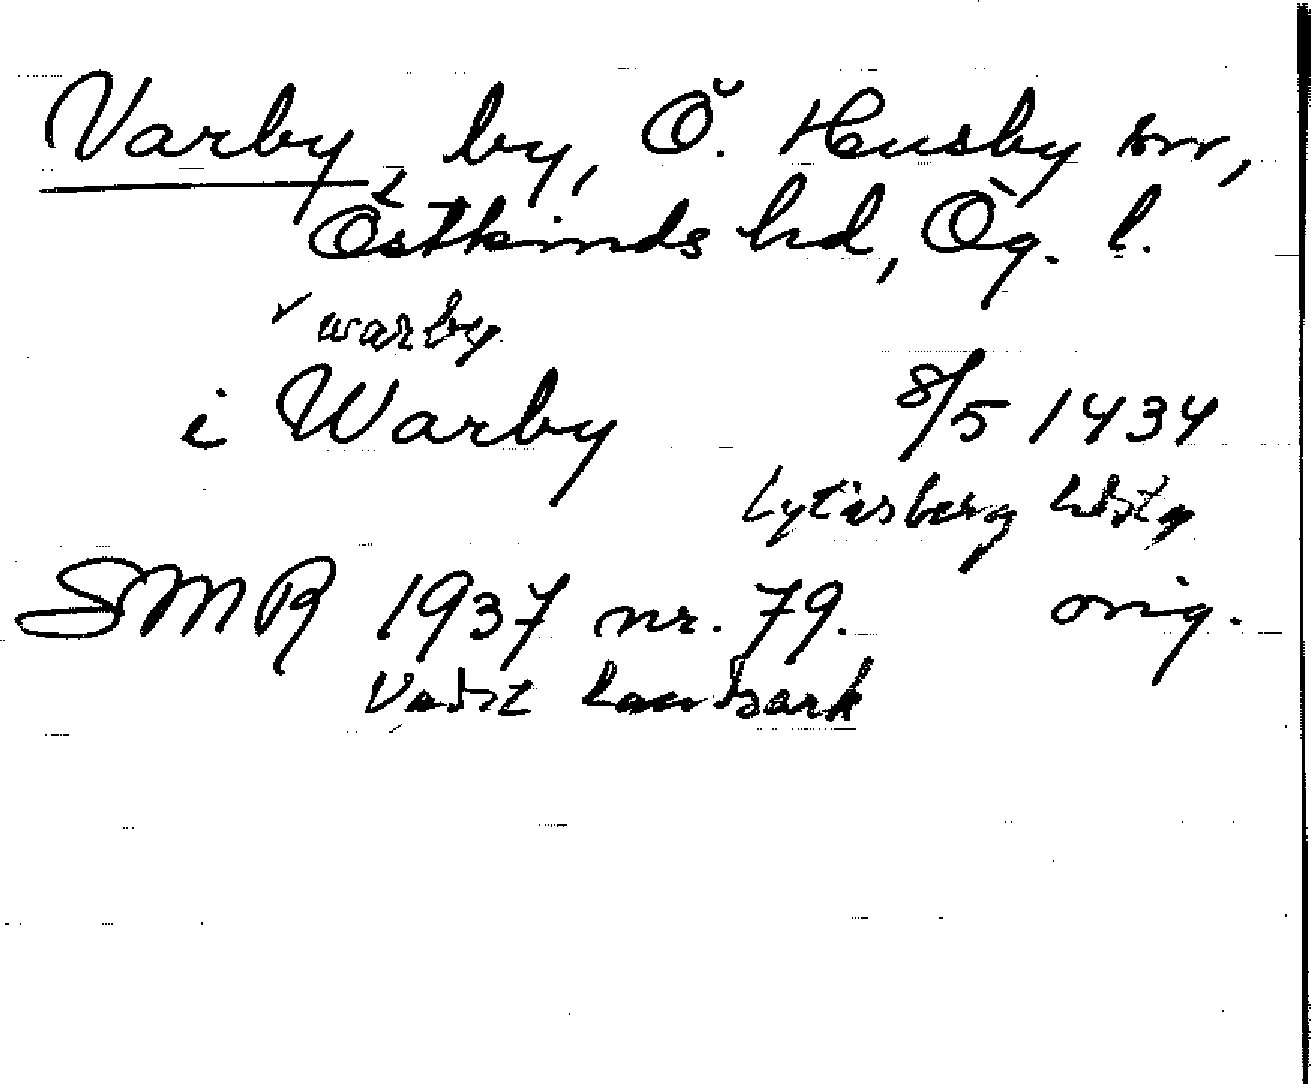 Varby, by, Ö. Husby snr,
Östkinds hd, Ög. l.
warby
i Warby 8/5 1434
Lytisberg
SMR 1937 nr. 79. orig.